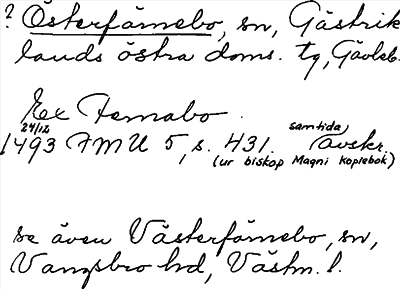 ? Österfärnebo, sn, Gästrik
lands östra doms. tg, Gävleb.
Ex Fernabo
24/12 samtida
1493 FMU 5, s. 431. avskr.
(ur biskop Magni kopiebok)
se även Västerfärnebo, sn,
Vangsbro hd, Västm. l.